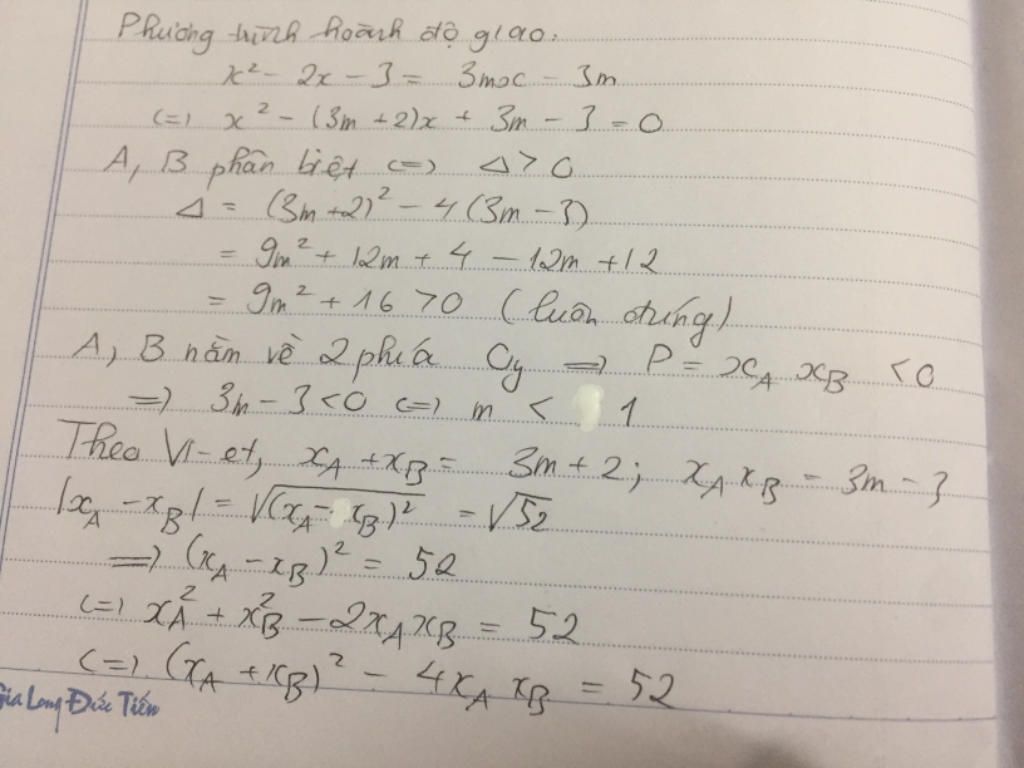 Phương trình hoành độ giao:
x² - 2x - 3 = 3mx - 3m
<=> x² - (3m + 2)x + 3m - 3 = 0
A, B phân biệt <=> Δ > 0
Δ = (3m + 2)² - 4(3m - 3)
= 9m² + 12m + 4 - 12m + 12
= 9m² + 16 > 0 (luôn đứng)
A, B nằm về 2 phía Oy => P = x_A x_B < 0
=> 3m - 3 < 0 <=> m < 1
Theo Vi-et, x_A + x_B = 3m + 2; x_A x_B = 3m - 3
|x_A - x_B| = √(x_A - x_B)² = √52
=> (x_A - x_B)² = 52
<=> x_A² + x_B² - 2x_A x_B = 52
<=> (x_A + x_B)² - 4x_A x_B = 52
Gia Long Đức Tiến